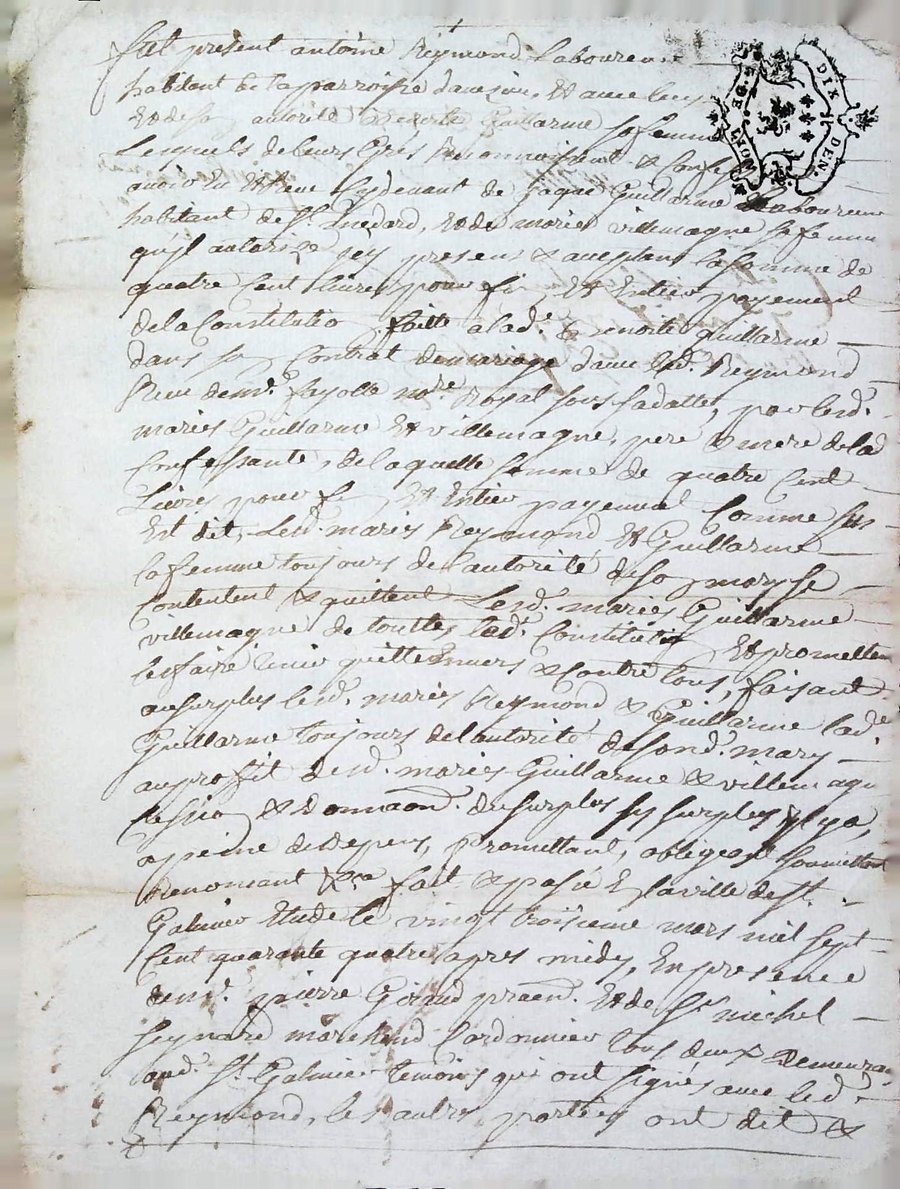 fut présent antoine Reymond Laboureur
habitant de la parroisse et avec luy
Et de son autorité Guillarme sa femme
Lesquels de leurs Grés Reconnoissent & Confessent
avoir Eu Et Receu Cydevant de Guillarme Laboureur
habitant de St. medard, Et de marie villemagne sa femme
qu'il autorize icy presens & aceptans la somme de
quatre Cent livres pour fin, Et Entier payement
de la Constitution faitte a lad. Benoite Guillarme
dans son Contrat de mariage avec led. Reymond
Receu de mr. fayolle nore. Royal sous sa datte, par lesd.
mariés Guillarme Et villemagne, pere & mere de lad
Confessante, de laquelle somme de quatre Cent
Livres pour fin Et Entier payement Comme sus
Est dit, Lesd. mariés Reymond Et Guillarme
la femme toujours de l'autorité de son mary se
Contentent & quittent Lesd. mariés Guillarme
villemagne de touttes lad. Constitution Et promettent
les faire tenir quitte Envers & Contre tous, faisant
au surplus lesd. mariés Reymond & Guillarme lad.
Guillarme toujours de l'autorité de sond. mary
au profit desd. mariés Guillarme & villemagne
& du surplus sy surplus y a,
a peine de depens, promettant, obligeant soumettant
Renonçant &ca fait & passé En la ville de St.
Galmier Etude le vingt troisieme mars mil sept
Cent quarante quatre apres midy, En presence
de mr. pierre Giraud praen. Et de Sr. michel
marchand Cordonnier tous deux Demeurant
aud. St. Galmier temoins qui ont signés avec led.
Reymond, les autres parties ont dit &
DE LYON DIX DEN.